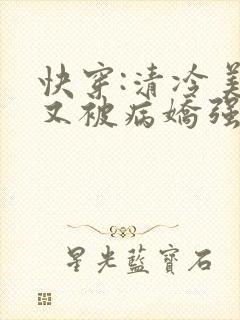 快穿:清冷美
又被病嬌强
星光藍寶石